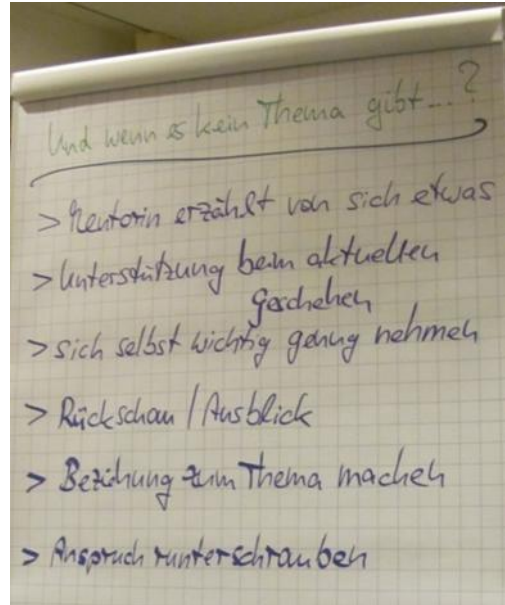 Und wenn es kein Thema gibt...?
> Mentorin erzählt von sich etwas
> Unterstützung beim aktuellen
Geschehen
> sich selbst wichtig genug nehmen
> Rückschau / Ausblick
> Beziehung zum Thema machen
> Anspruch runterschrauben